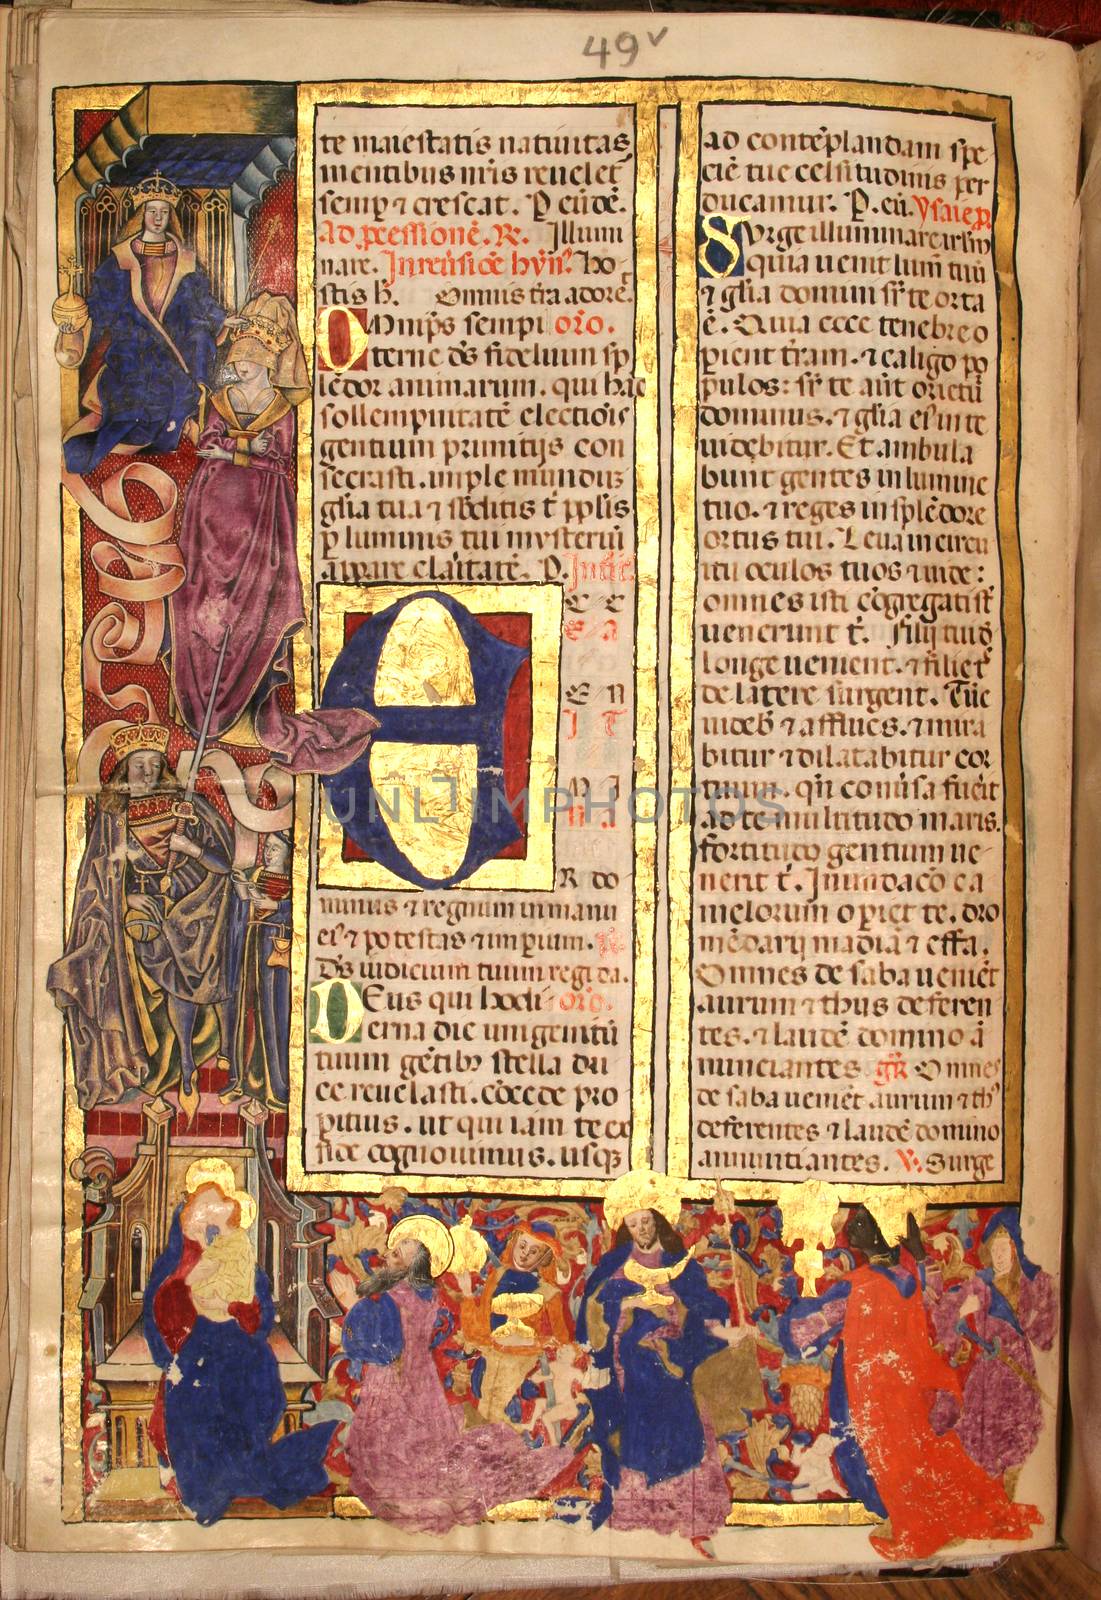 49v
te maiestatis nativitas
mentibus nr̄is reveleṫ
semp̱ ⁊ crescat. P. eūdē.
Ad p̱cessionē. R̷. Illumi
nare. In reūs͛ꝫ hȳn̄. ho
stis h. Omnis t̄ra adorē.
OMnip̄s sempi or̄o.
terne d̄s fidelium sp̱
lēdor animarum. qui hāc
sollempnitatē electiōis
gentium primitijs con
secrasti. imple mundū
gl̄ia tua ⁊ sbditis t̄ pp̄lis
p̱ luminis tui mysteriū
appare claritatē. P. Intīt.
ECCE
EA
EN
IT
NI
NA
R do
minus ⁊ regnum in manu
ei⁹ ⁊ potestas ⁊ imp̱ium. p̄.
D̄s iudicium tuum regi da.
DEus qui hodi or̄o.
erna die unigenitū
tuum gētibȝ stella du
ce revelasti. cōcede pro
pitius. ut qui iam te ex
fide cognovimus. usqȝ
ad contēplandam spe
ciē tue celsitudinis per
ducamur. P. eū. Ysaie p̱.
SUrge illuminare ir̄lm̄
quia uenit lum̄ tuū
⁊ gl̄ia domini sr̄ te orta
ē. Quia ecce tenebre o
pient t̄ram. ⁊ caligo po
pulos: sr̄ te aūt orietū
dominus. ⁊ gl̄ia ei⁹ in te
uidebitur. Et ambula
bunt gentes in lumine
tuo. ⁊ reges in splēdore
ortus tui. Leua in circu
itu oculos tuos ⁊ uide:
omnes isti cōgregati s̄t
uenerunt t̄. filij tui d̄
longe uenient. ⁊ filie t̄
de latere surgent. Tūc
uideb̄ ⁊ afflues. ⁊ mira
bitur ⁊ dilatabitur cor
tuum. qn̄ conūsa fūeit
ad te multitudo maris.
fortitudo gentium ue
nerit t̄. Inundacō ca
melorum opiet te. dro
mēdarij madiā ⁊ effa.
Omnes de saba ueniēt
aurum ⁊ thus deferen
tes. ⁊ laudē domino ā
nunciantes. gr̄. Omnes
de saba ueniēt aurum ⁊ th⁹
deferentes ⁊ laudē domino
annuntiantes. V. Surge
UNLIMPHOTOS